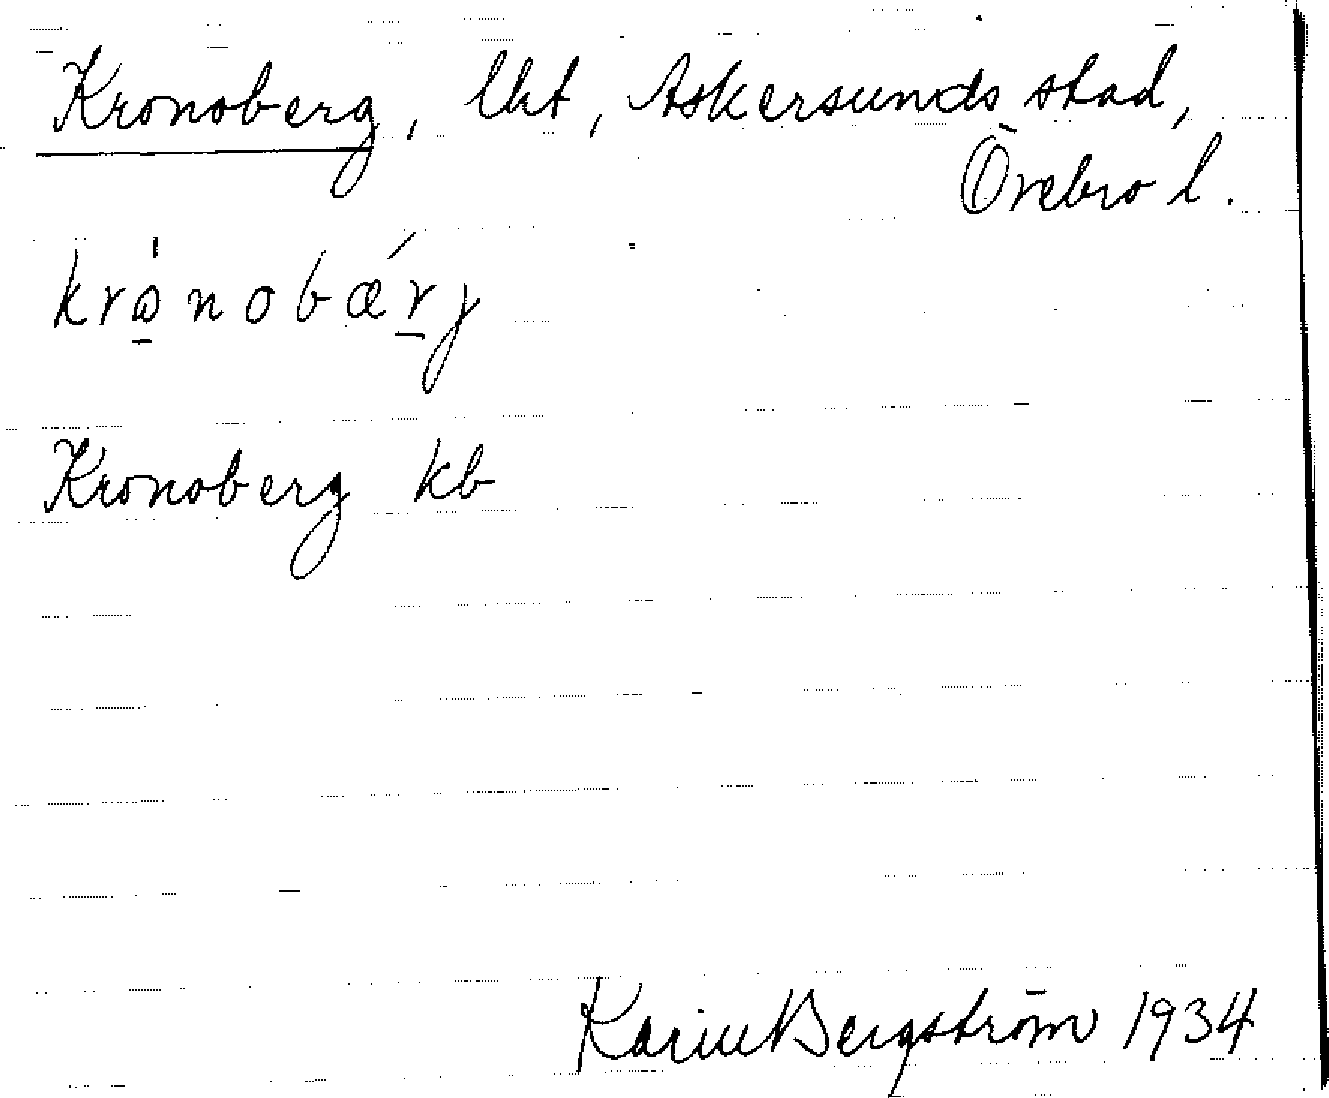 Kronoberg, lht, Askersunds stad,
Örebro l.
krònobǽrj
Kronoberg kb
Karin Bergström 1934